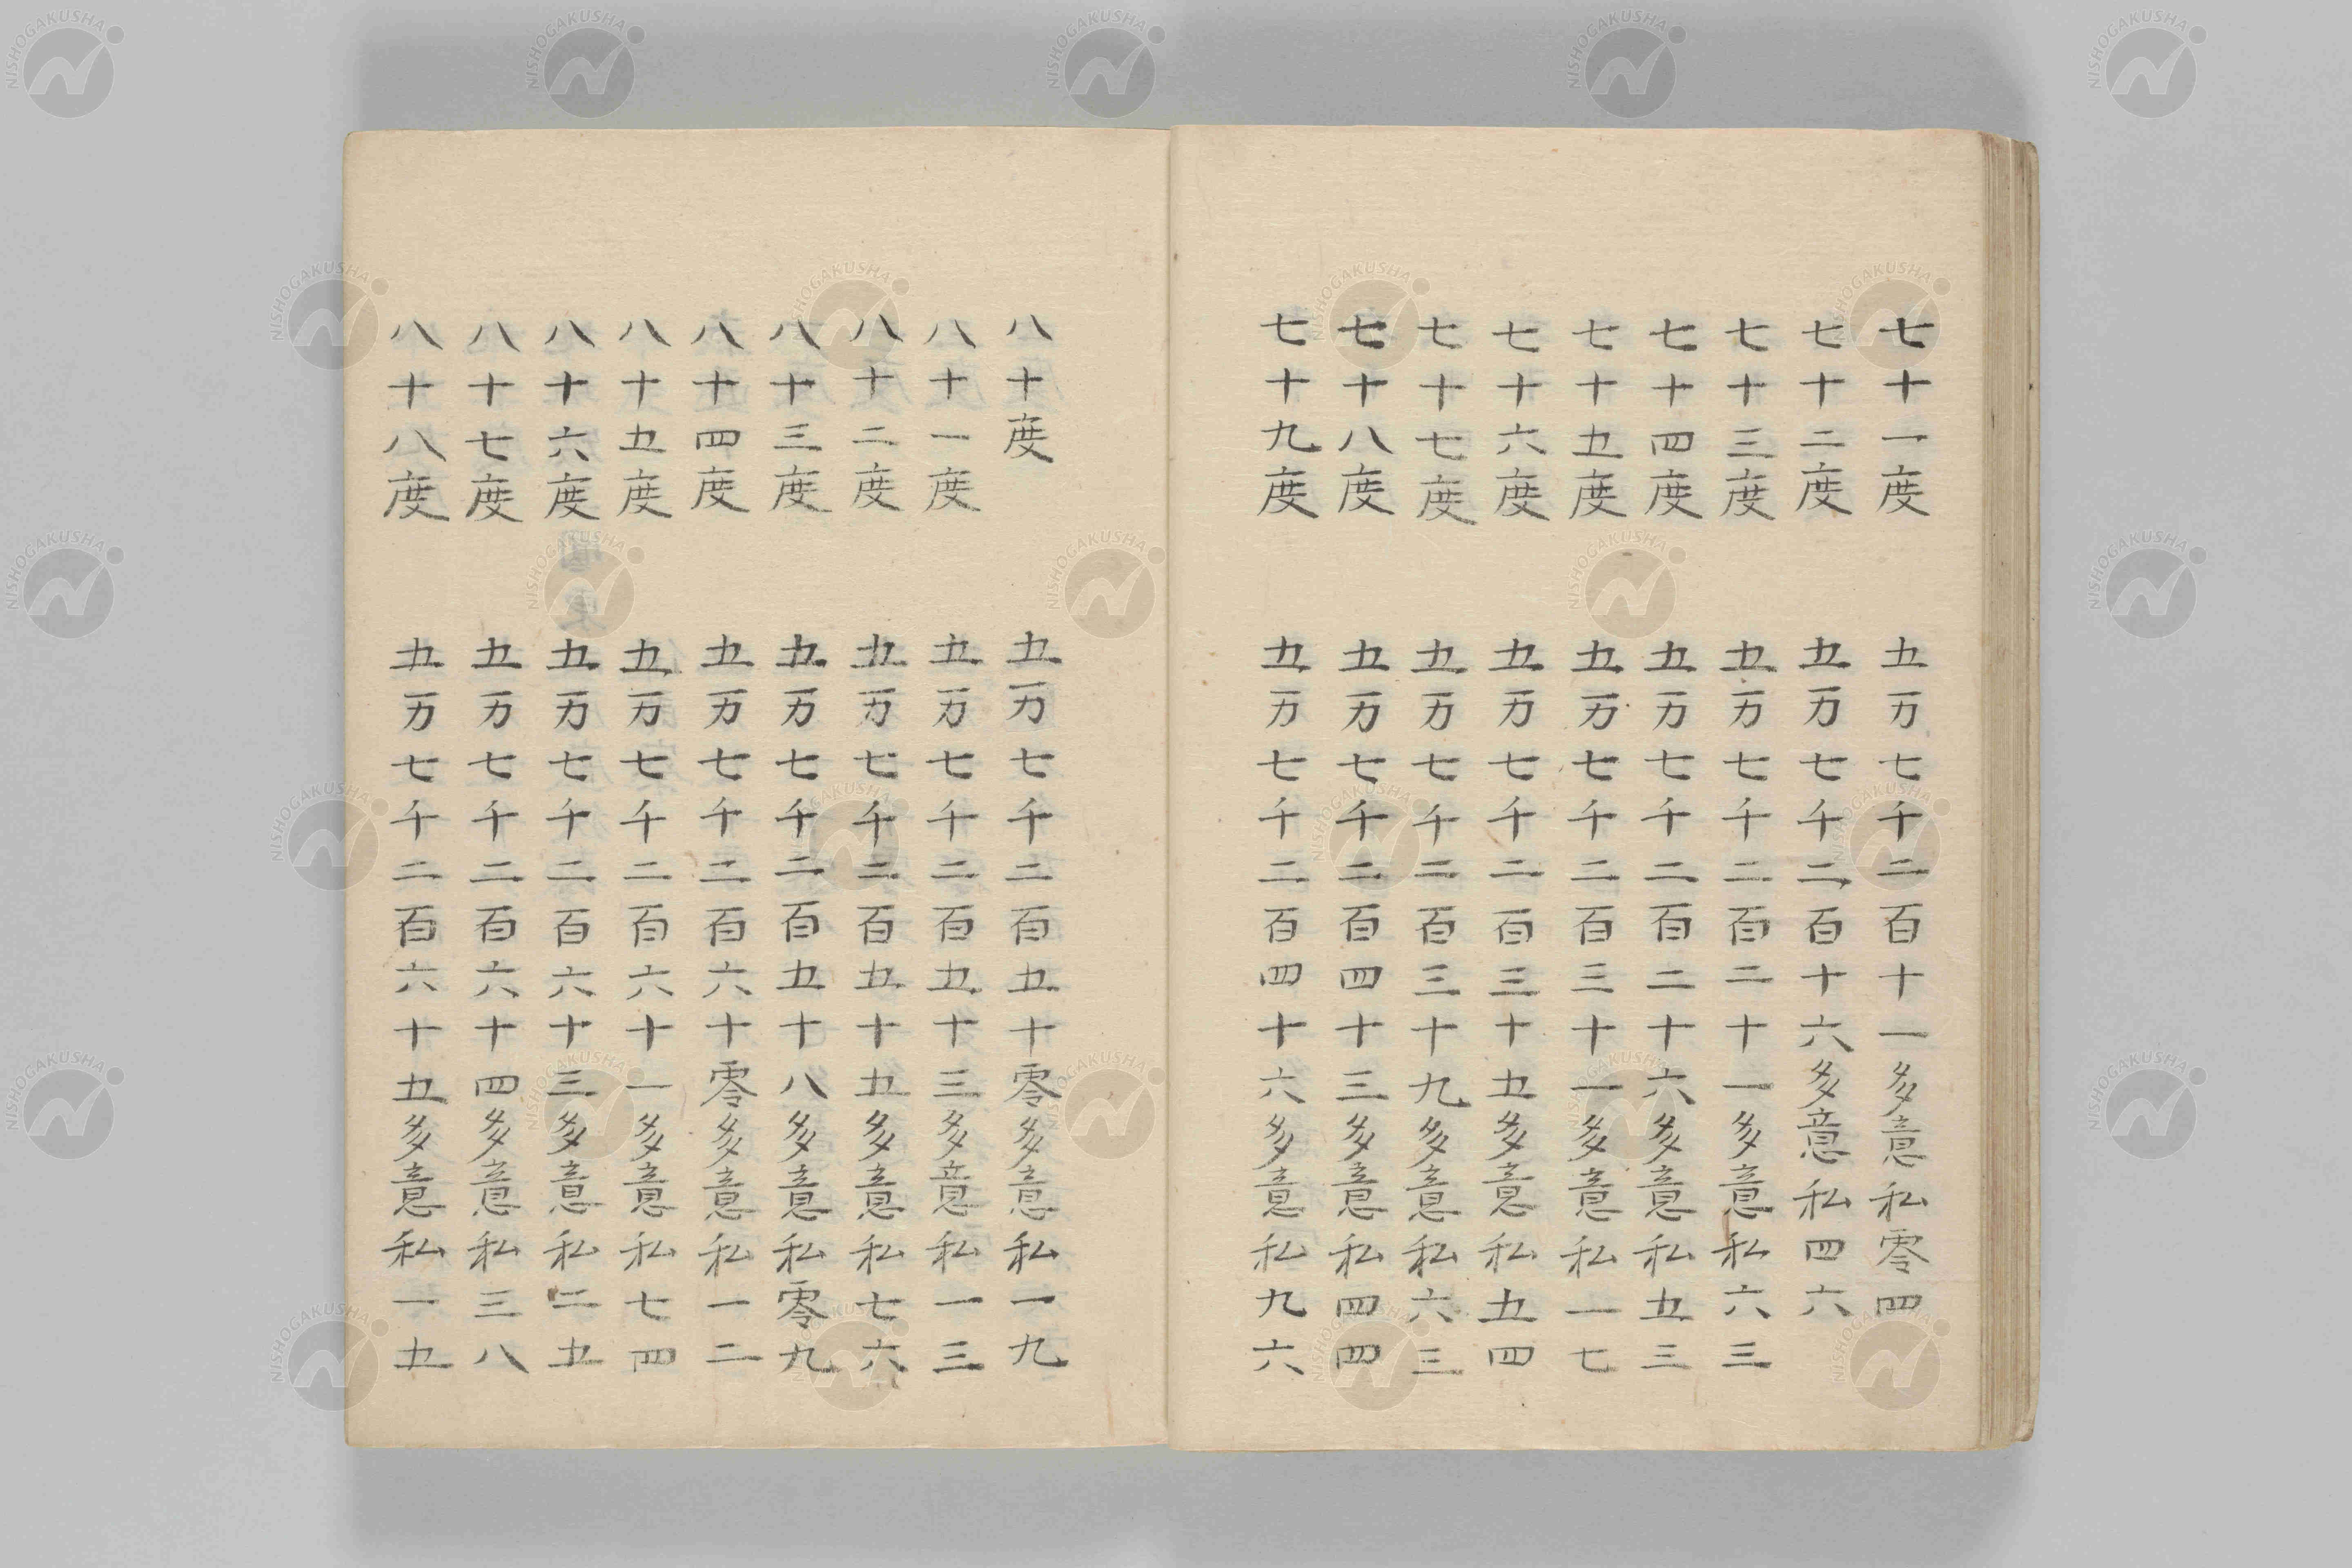 七十一度 五万七千二百十一多意私零四
七十二度 五万七千二百十六多意私四六
七十三度 五万七千二百二十一多意私六三
七十四度 五万七千二百二十六多意私五三
七十五度 五万七千二百三十一多意私一七
七十六度 五万七千二百三十五多意私五四
七十七度 五万七千二百三十九多意私六三
七十八度 五万七千二百四十三多意私四四
七十九度 五万七千二百四十六多意私九六
八十度 五万七千二百五十零多意私一九
八十一度 五万七千二百五十三多意私一三
八十二度 五万七千二百五十五多意私七六
八十三度 五万七千二百五十八多意私零九
八十四度 五万七千二百六十零多意私一二
八十五度 五万七千二百六十一多意私七四
八十六度 五万七千二百六十三多意私二五
八十七度 五万七千二百六十四多意私三八
八十八度 五万七千二百六十五多意私一五
NISHOGAKUSHA